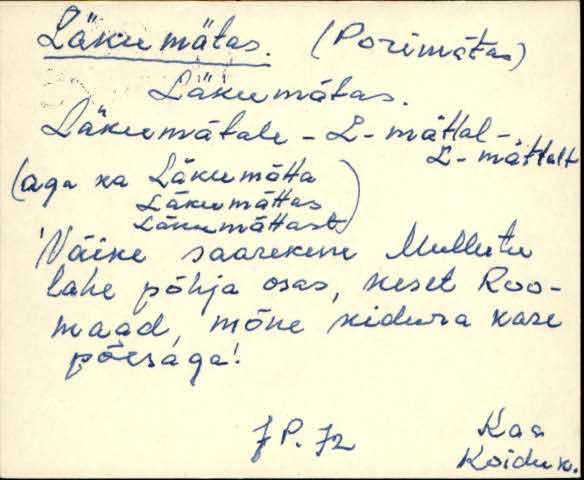 Läkumätas. (Porimätas)
Läkumätas.
Läkumätale - L-mättal -
L-mättalt
(aga ka Läkumätta
Läkumättas
Läkumättast)
Väike saarekene Mullutu
lahe põhja osas, keset Roo-
maad, mõne kidura kase
põesaga!
J P. 72
Kaa
Koidu k.